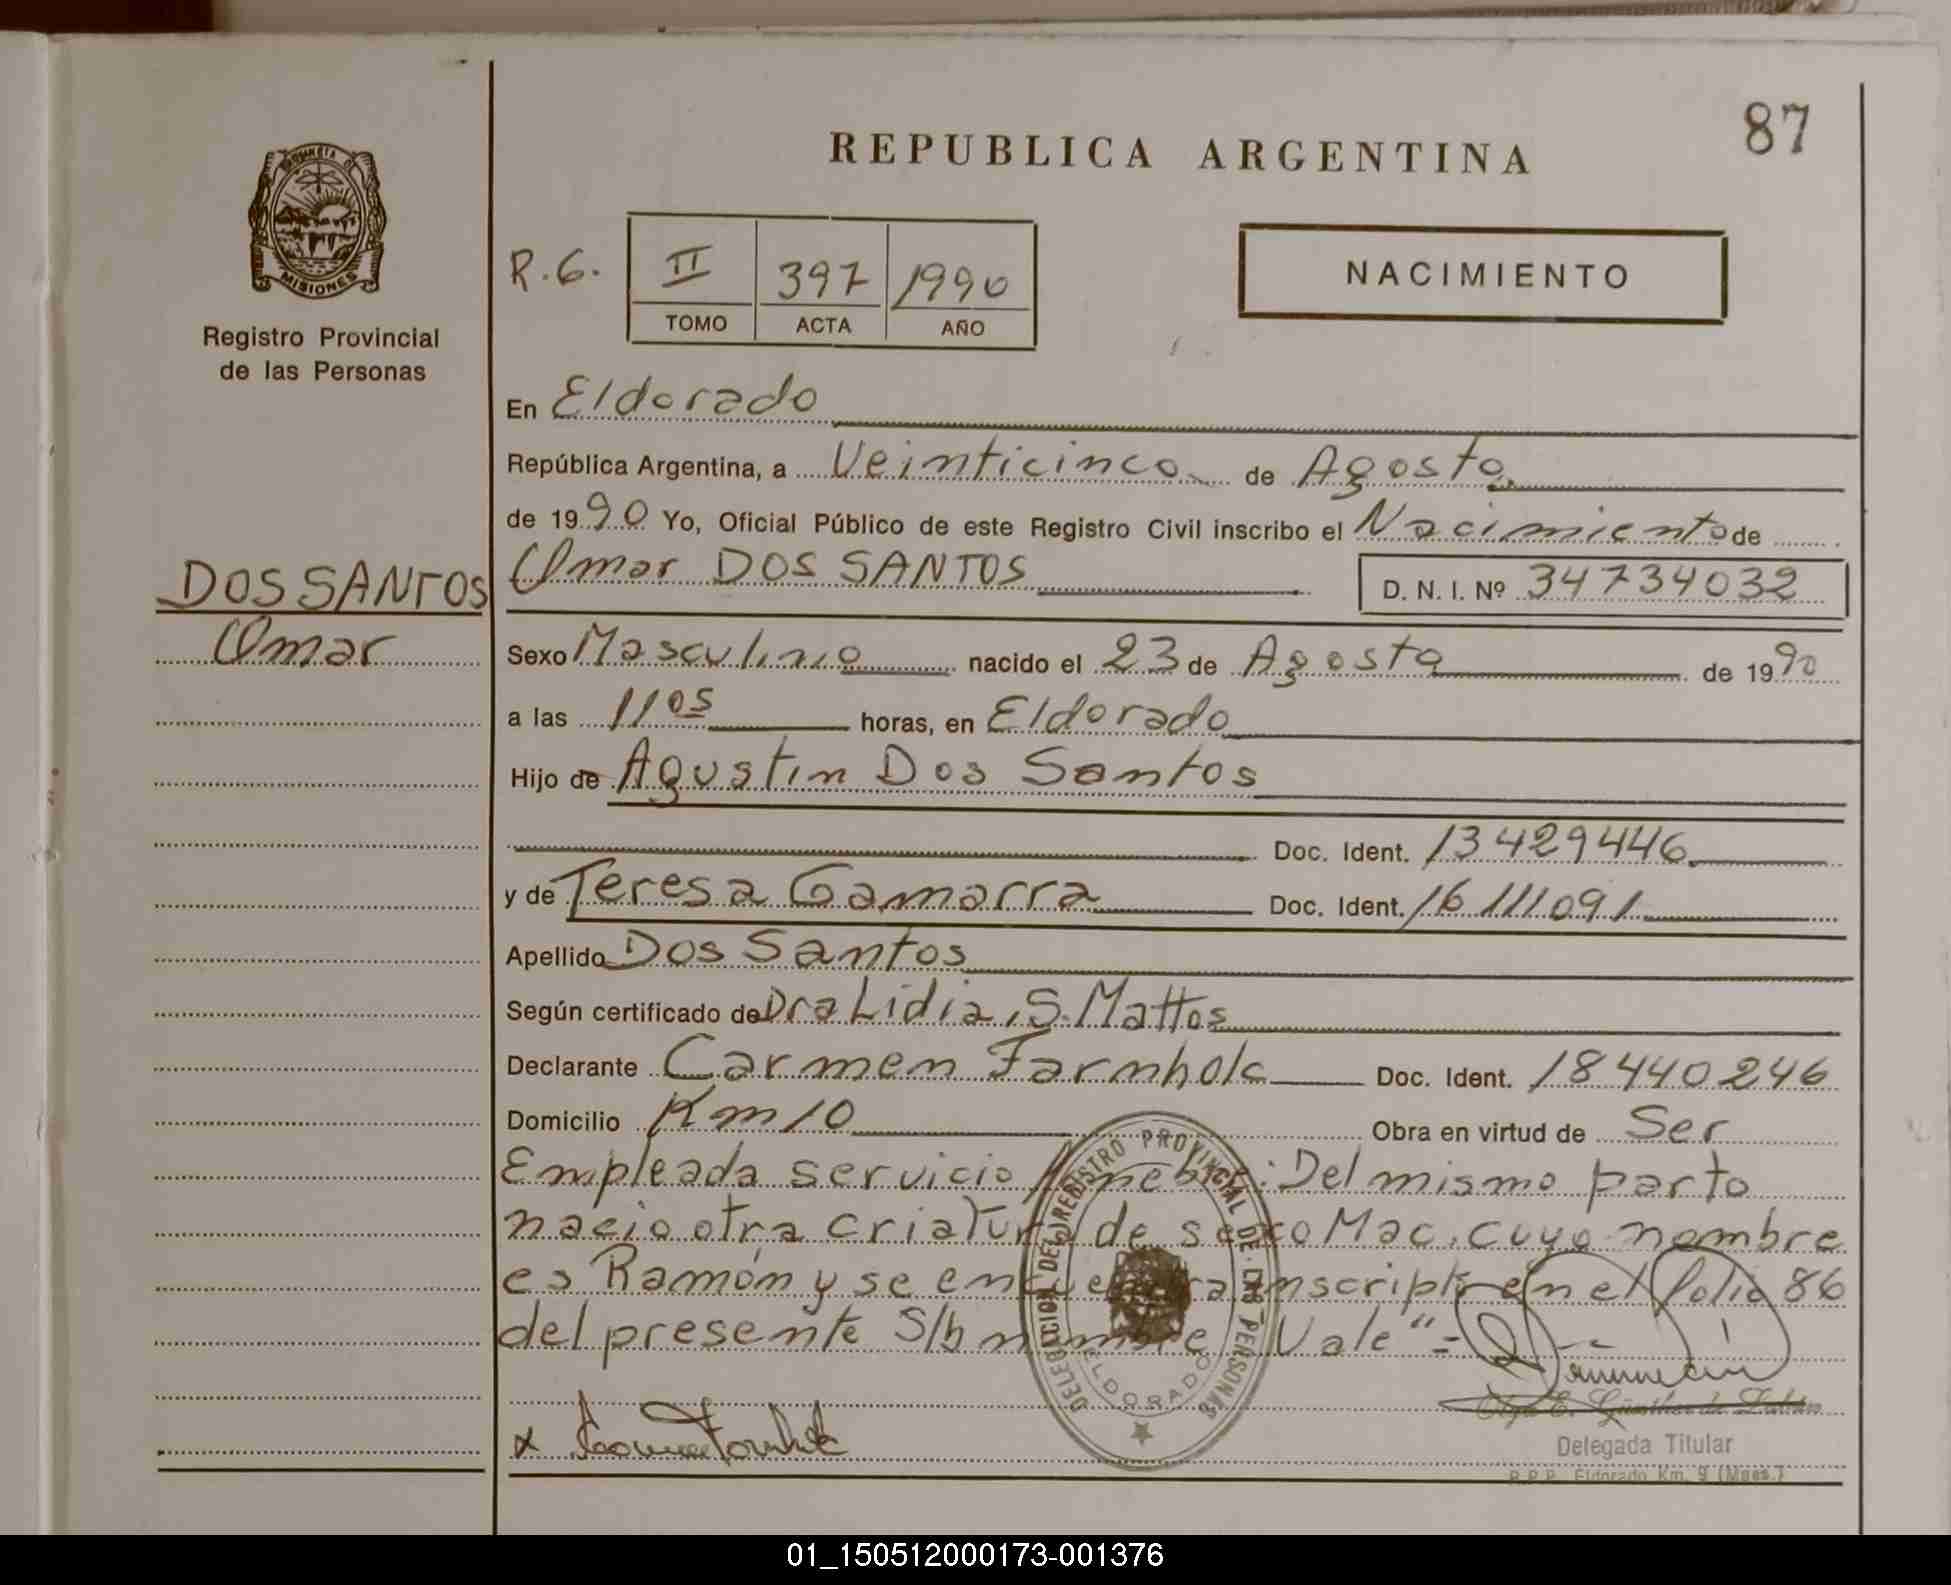 87
REPUBLICA ARGENTINA
PROVINCIA DE
MISIONES
Registro Provincial
de las Personas
R.G.
II 397 1990
TOMO ACTA AÑO
NACIMIENTO
En Eldorado
República Argentina, a Veinticinco de Agosto
de 1990 Yo, Oficial Público de este Registro Civil inscribo el Nacimiento de
DOS SANTOS
Omar
Omar DOS SANTOS D. N. I. Nº 34734032
Sexo Masculino nacido el 23 de Agosto de 1990
a las 11 05 horas, en Eldorado
Hijo de Agustin Dos Santos
Doc. Ident. 13429446
y de Teresa Gamarra Doc. Ident. 16111091
Apellido Dos Santos
Según certificado de Dra Lidia, S. Mattos
Declarante Carmen Farnhola Doc. Ident. 18440246
Domicilio Km 10 Obra en virtud de Ser
Empleada servicio funebre: Del mismo parto
nacio otra criatura de sexo Mac. cuyo nombre
es Ramón y se encuentra inscripto en el folio 86
del presente S/b nombre "Vale"=
DELEGACION DEL REGISTRO PROVINCIAL DE LAS PERSONAS
ELDORADO
Olga E. Günther de
Delegada Titular
R.P.P. Eldorado Km. 9 (Mnes.)
01_150512000173-001376